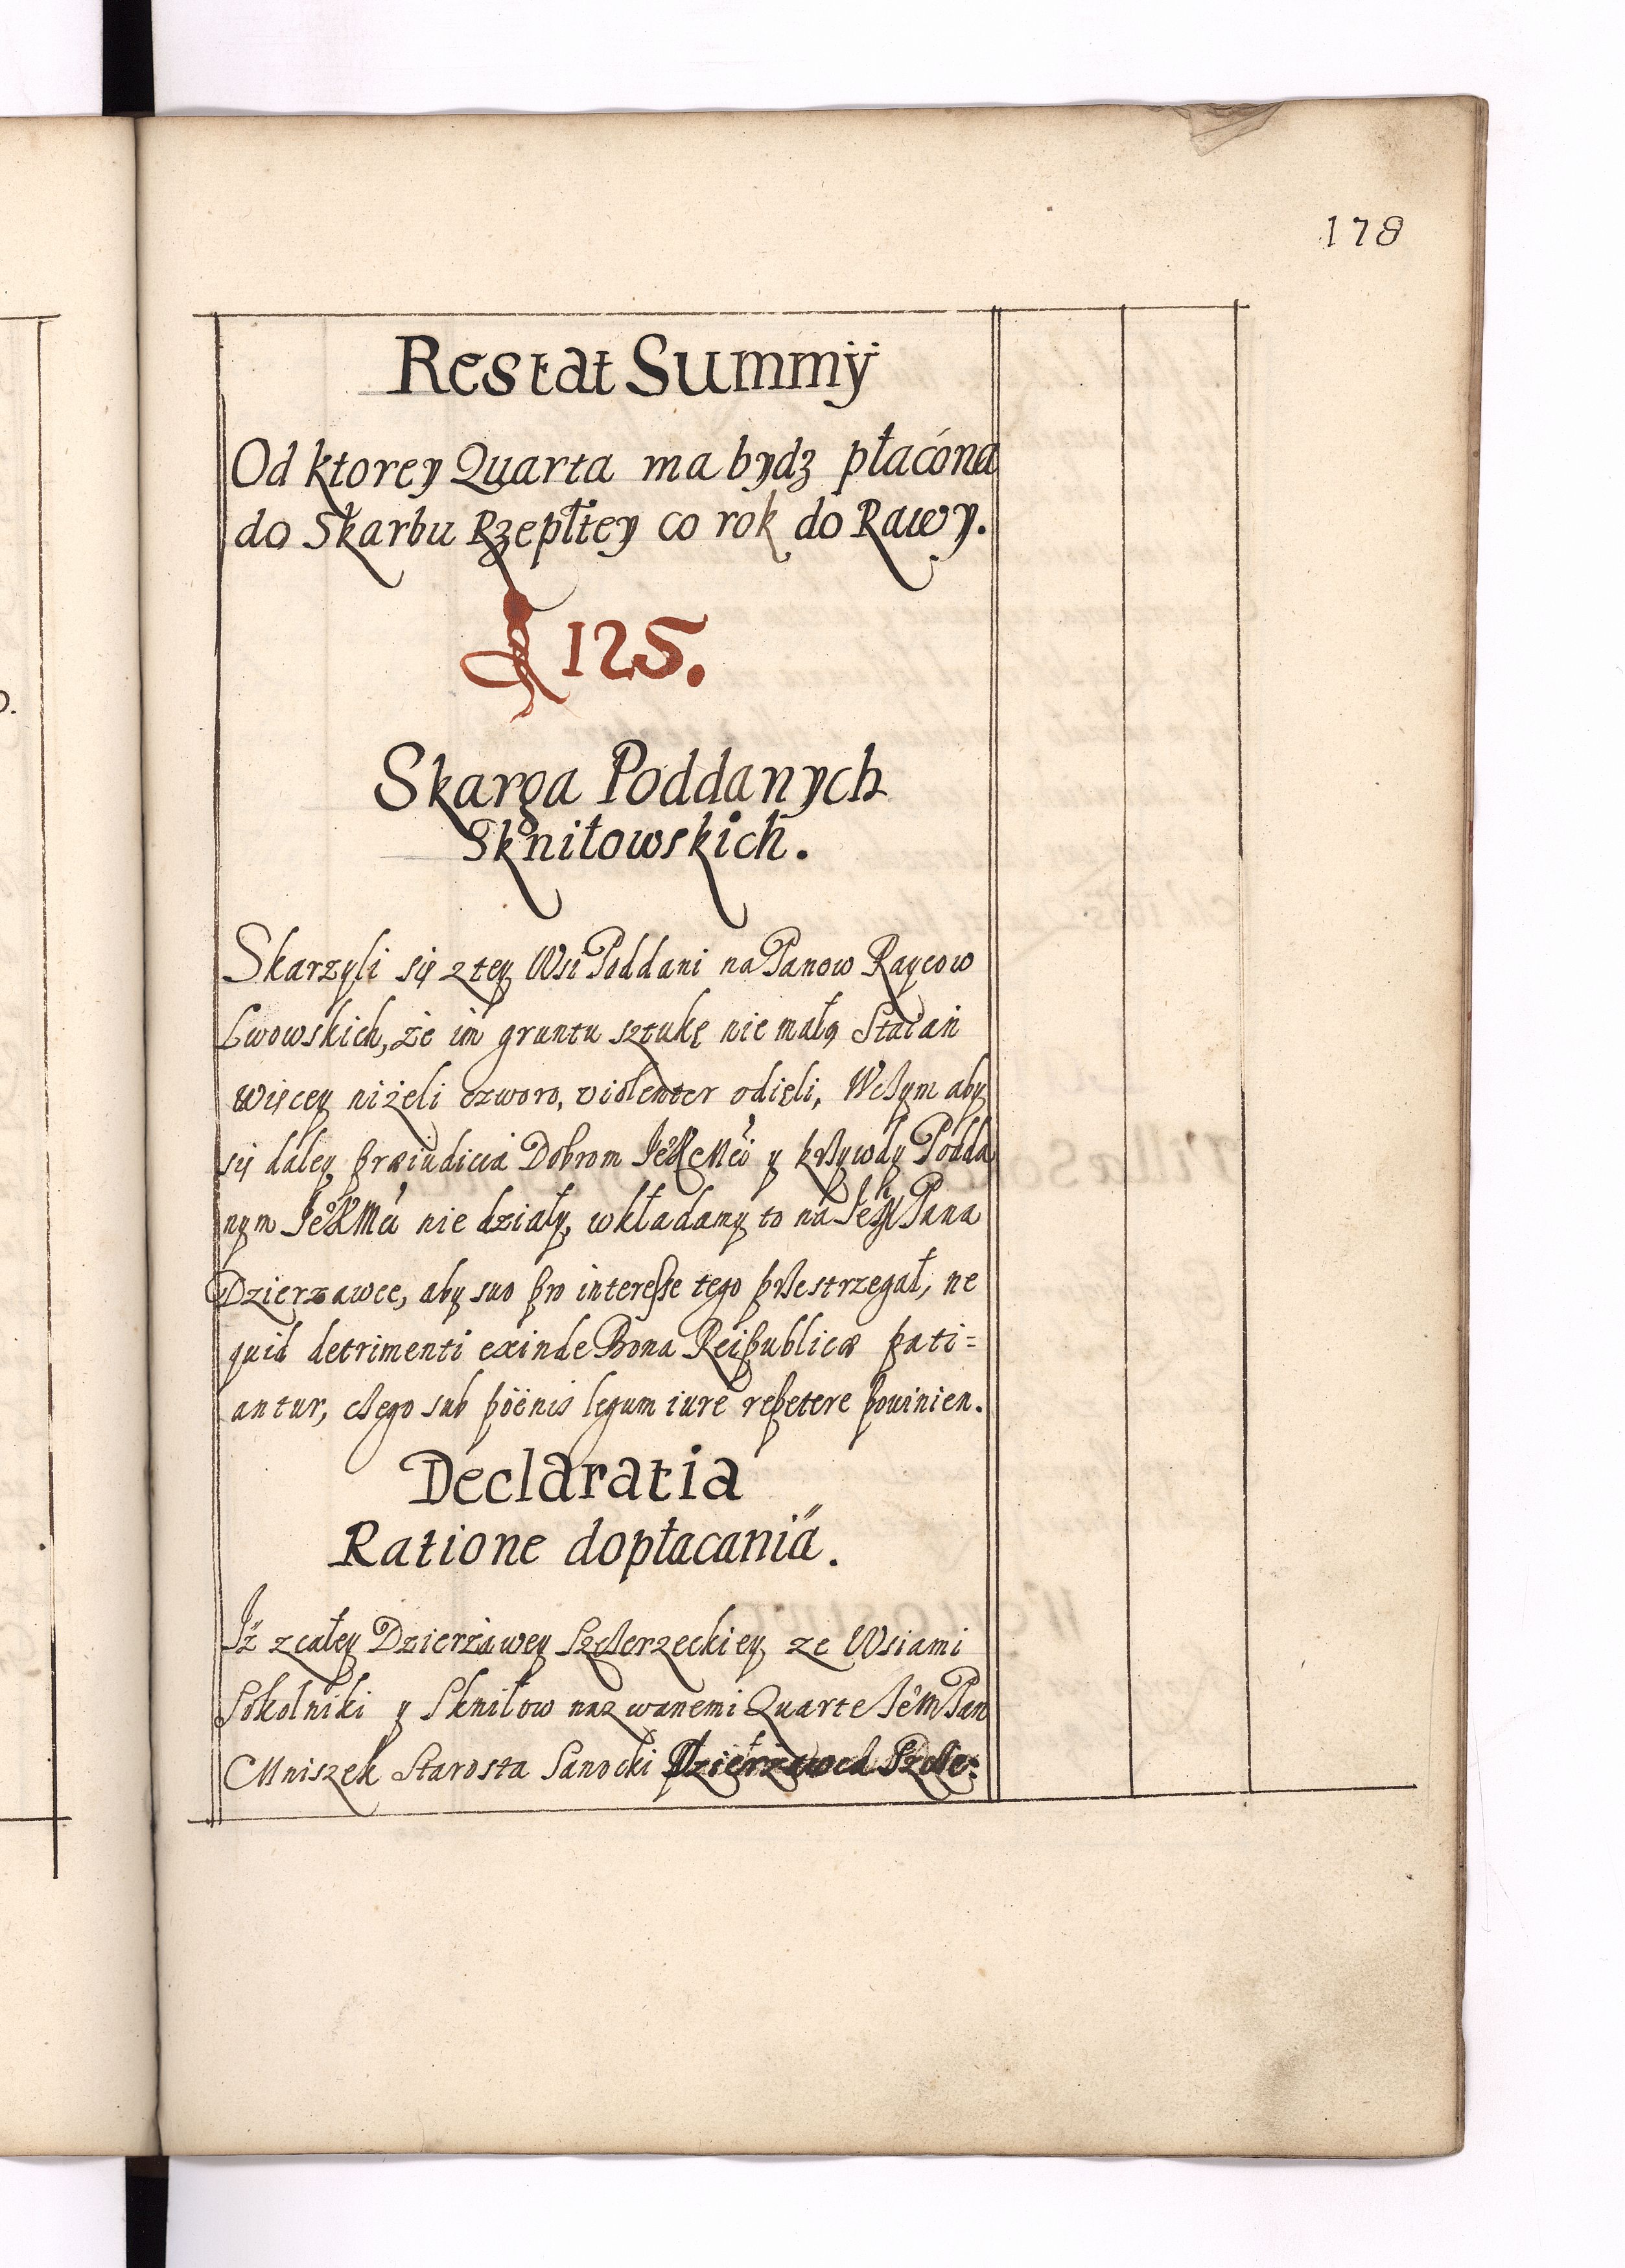 178
Restat Summÿ
Od ktorey Quarta ma bydz płacóna
do Skarbu Rzepłtey co rok do Rawy.
125.
Skarga Poddanych
Skniłowskich.
Skarzyli się z tey Wsi Poddani na Panow Raycow
Lwowskich, że im gruntu sztukę nie małą Staian
więcey niżeli czworo, violenter odięli, Wczym aby
się daley præiudicia Dobrom JeºKrMći y krzywdy Podda
nym JeºKMći nie działy, wkładamy to na Pana
Dzierzawce, aby suo pro interesse tego przestrzegał, ne
quid detrimenti exinde Bona Reipublicæ pati=
antur, czego sub pöenis legum iure repetere powinien.
Declaratia
Ratione dopłacaniä.
Iż z całey Dzierżawey Szczerzeckiey ze Wsiami
Sokolniki y Skniłow nazwanemi Quarte JeºM Pan
Mniszek Starosta Sanocki Dzierżawca Szcze: